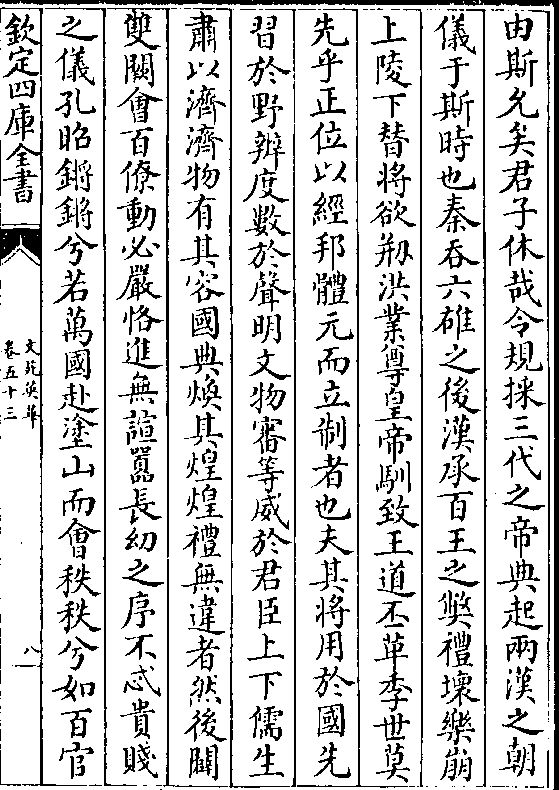 由斯允矣君子休哉令規採三代之帝典起兩漢之朝
儀于斯時也秦吞六雄之後漢承百王之弊禮壞樂崩
上陵下替將欲剏洪業尊皇帝馴致王道丕革季世莫
先乎正位以經邦體元而立制者也夫其將用於國先
習於野辨度數於聲明文物審等威於君臣上下儒生
肅以濟濟物有其容國典煥其煌煌禮無違者然後闢
雙闕會百僚動必嚴恪進無諠囂長幼之序不忒貴賤
之儀孔昭鏘鏘兮若萬國赴塗山而會秩秩兮如百官
欽定四庫全書
文苑英華
卷五十三
八